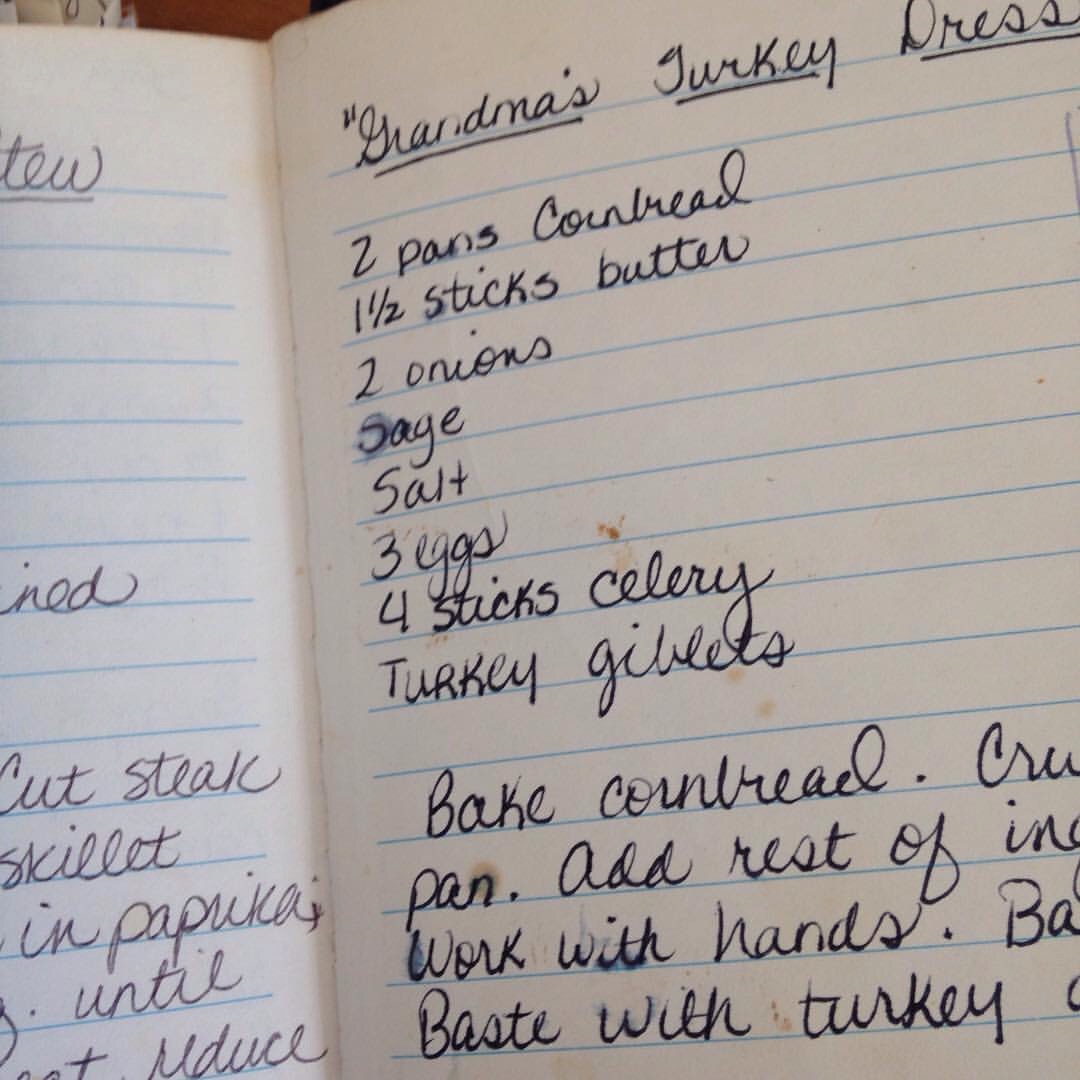 tew
ined
Cut steak
skillet
in paprika;
g. until
reduce
"Grandma's Turkey Dress
2 pans Cornbread
1½ sticks butter
2 onions
Sage
Salt
3 eggs
4 sticks celery
Turkey giblets
Bake cornbread. Cru
pan. Add rest of ing
Work with hands. Ba
Baste with turkey